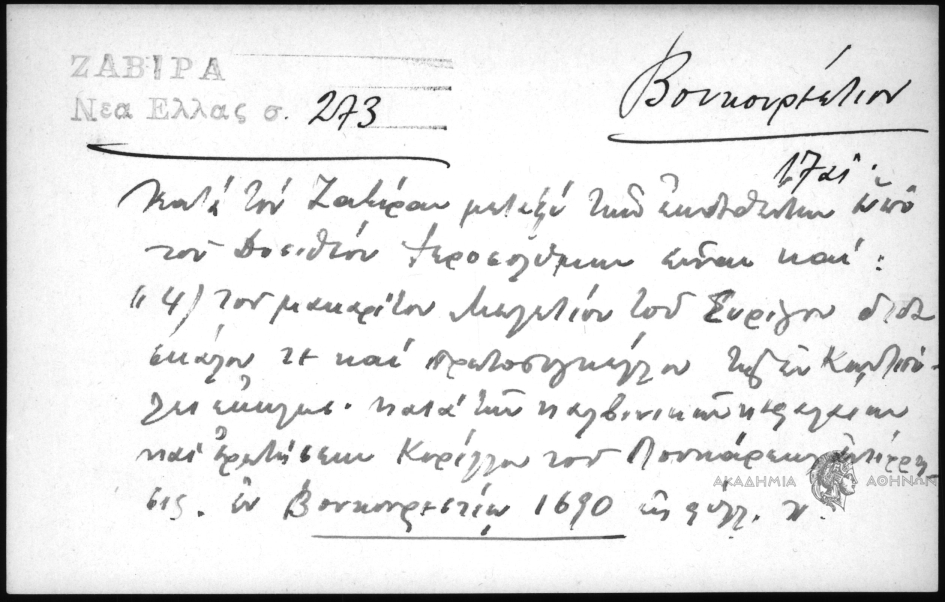 ΖΑΒΙΡΑ
Νεα Ελλας σ. 273
Βουκουρέστιον
17 αἰ.
Κατά τόν Ζαβίραν μεταξύ τῶν ἐκδοθέντων ὑπό
τοῦ Δοσιθέου Ἱεροσολύμων εἶναι καί:
"4) τοῦ μακαρίτου Μελετίου τοῦ Συρίγου διδα
σκάλου τε καί πρωτοσυγκέλλου τῆς ἐν Κωνστπό-
λει ἐκκλησ. κατά τῶν καλβινικῶν κεφαλαίων
καί ἐρωτήσεων Κυρίλλου τοῦ Λουκάρεως ἀντίρρη-
σις. ἐν Βουκουρεστίῳ 1690 εἰς φύλλ. ν.
ΑΚΑΔΗΜΙΑ ΑΘΗΝΩΝ